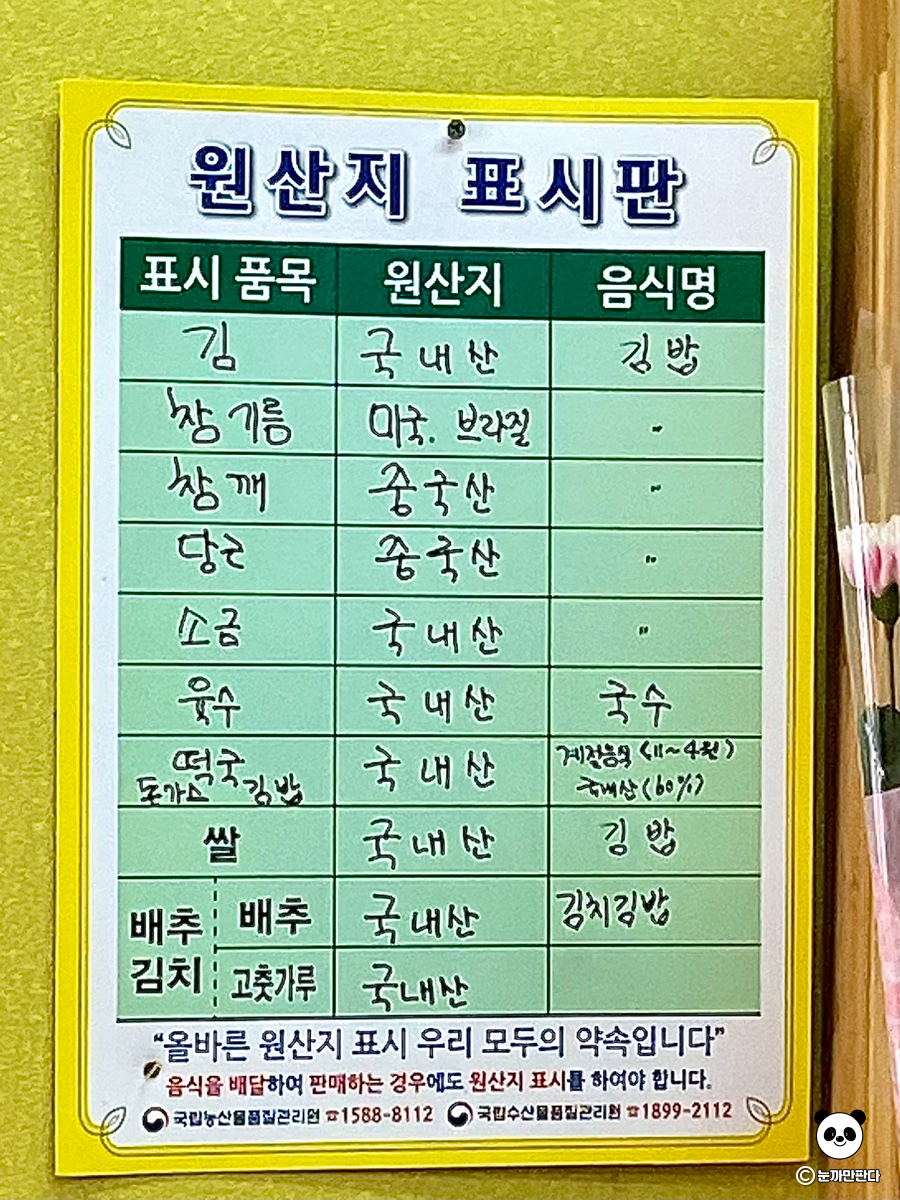 원산지 표시판
표시 품목 원산지 음식명
김 국내산 김밥
참기름 미국. 브라질 〃
참깨 중국산 〃
당근 중국산 〃
소금 국내산 〃
육수 국내산 국수
떡국 국내산 계절음식 (11~4월)
돈가스 김밥 국내산 (60%)
쌀 국내산 김밥
배추김치 배추 국내산 김치김밥
고춧가루 국내산
“올바른 원산지 표시 우리 모두의 약속입니다”
음식을 배달하여 판매하는 경우에도 원산지 표시를 하여야 합니다.
국립농산물품질관리원 ☎1588-8112 국립수산물품질관리원 ☎1899-2112
©눈까만판다